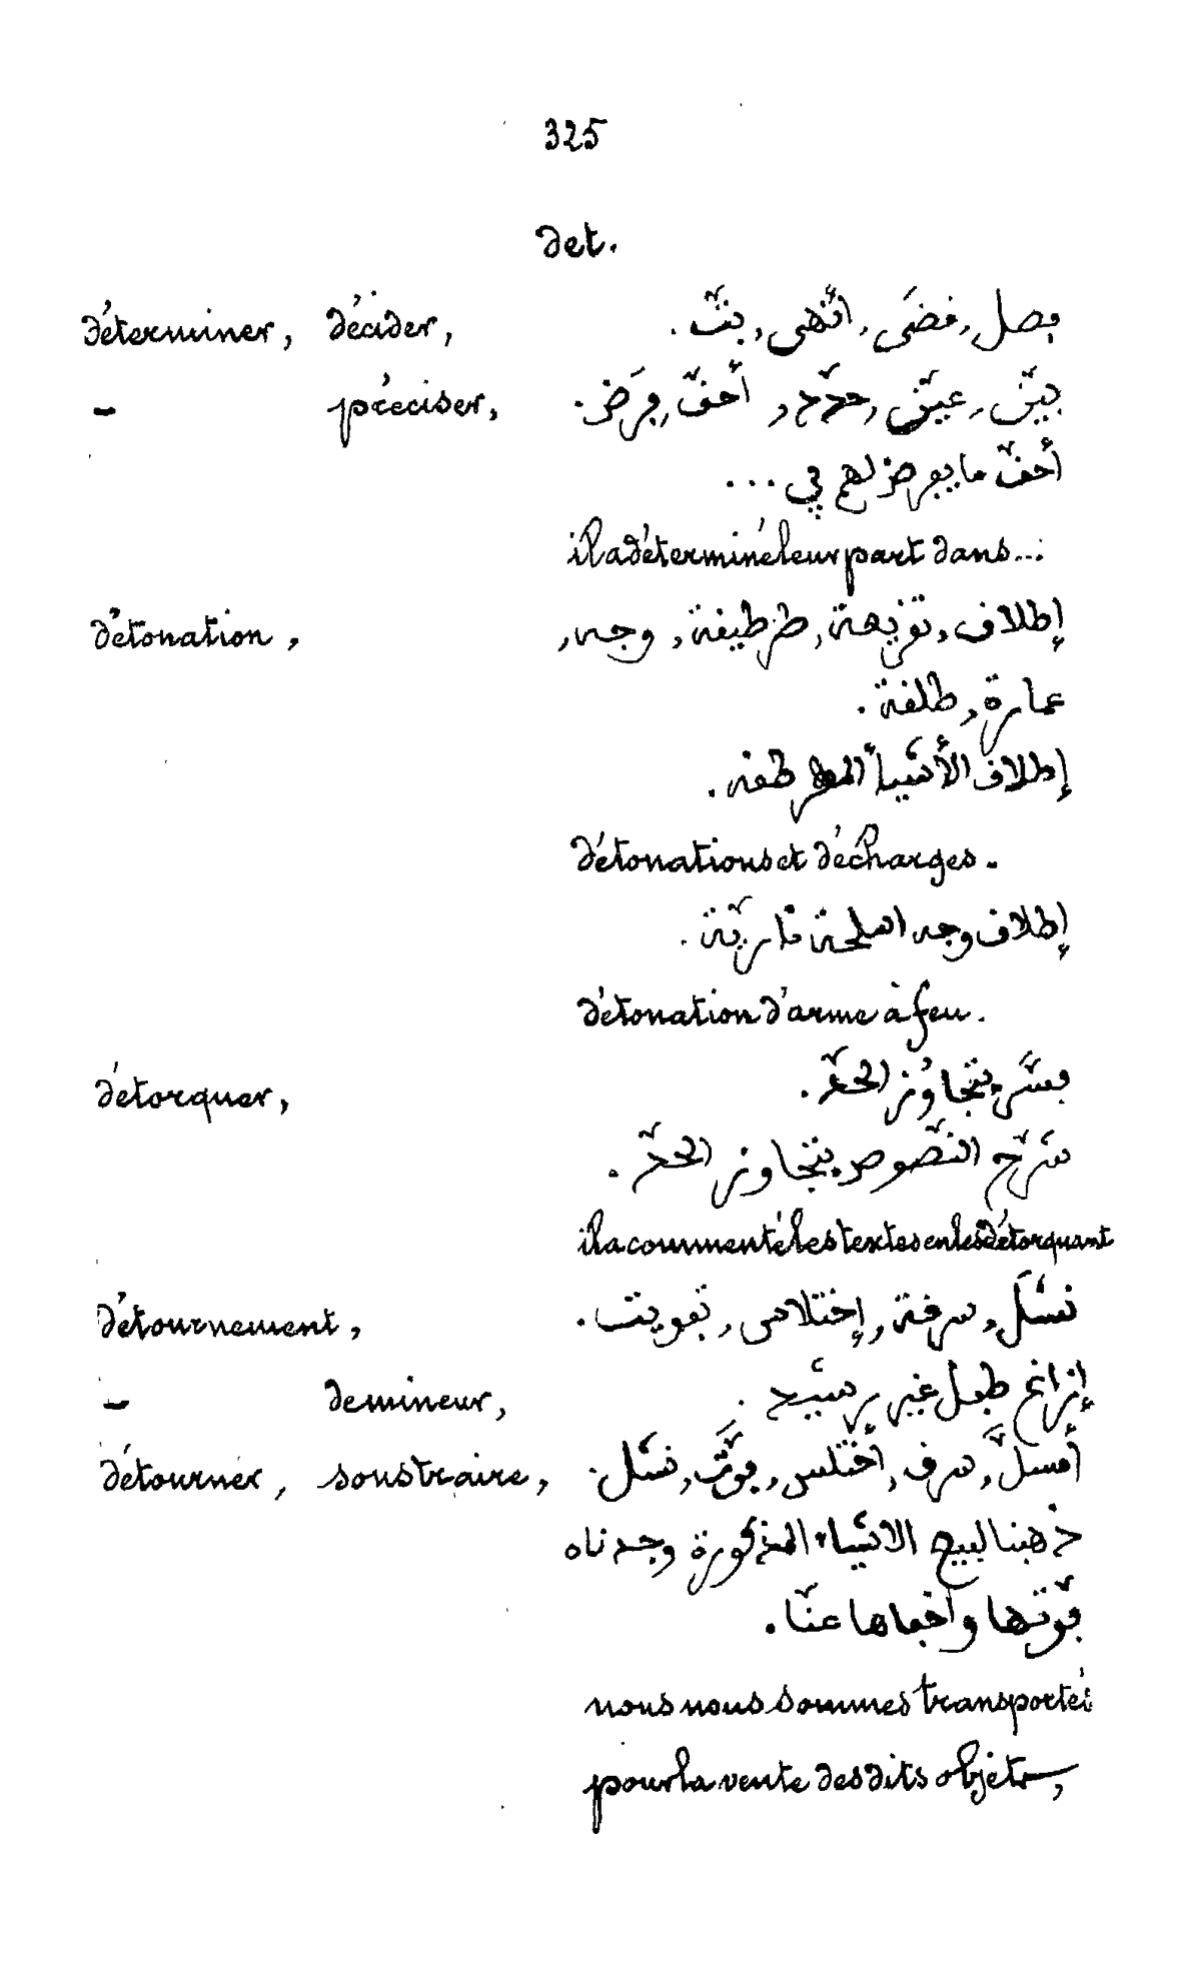 325
det.
déterminer, décider, فصل, قضَى, انّهى, بتّ.
- préciser, بيّن, عيّن, حدّد, أحقّ, فرَض.
أحقّ ما يعرض لهم في ...
il a déterminé leur part dans...
détonation, إطلاق, تفزيعة, طرطيقة, وجه,
عمارة, طلقة.
إطلاق الأشيأ المطرطقة.
détonations et décharges.
إطلاق وجه اسلحة ناريّة.
détonation d'arme à feu.
détorquer, فسّر بتجاوُز الحدّ.
شرّح النّصوص بتجاوز الحدّ.
il a commenté les textes en les détorquant
détournement, نشَل, سرقة, إختلاس, تفويت.
- de mineur, طفل غير رشيد.
détourner, soustraire, سرق, أختلس, فوَّت, نشل.
ذهبنا لبيع الاشياء المذكورة وجدناه
فوّتها وأخفاها عنّا.
nous nous sommes transportés
pour la vente des dits objets,